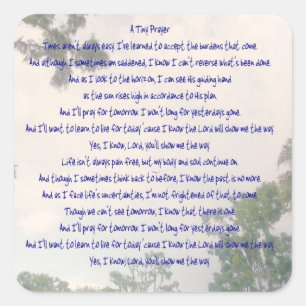 A Tiny Prayer
Times aren't always easy. I've learned to accept the burdens that come.
And although I sometimes am saddened, I know I can't reverse what's been done.
And as I look to the horizon, I can see His guiding hand
as the sun rises high in accordance to His plan.
And I'll pray for tomorrow. I won't long for yesterdays gone.
And I'll want to learn to live for today 'cause I know the Lord will show me the way.
Yes, I know, Lord, you'll show me the way.
Life isn't always pain-free, but my body and soul continue on.
And though I sometimes think back to before, I know the past is no more.
And as I face life's uncertainties, I'm not frightened of that to come.
Though we can't see tomorrow, I know that there is one.
And I'll pray for tomorrow. I won't long for yesterdays gone.
And I'll want to learn to live for today 'cause I know the Lord will show me the way.
Yes, I know, Lord, you'll show me the way.